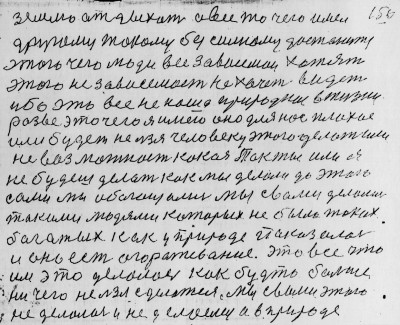 землю отдыхат а вее то чего имел 156
другому такому бессилному достанит
этого чего люди все зависими хотят
этого независемост не хочат видет
ибо это все не наша природнае в жизни.
разве это чего я имею оно для нас плохае
или будет нелзя человеку этого делат или
не возможност какая Так ты или я
не будеш делат как мы делали до этого
сами мы обогощали мы с вами делалис
такими людями каторых не было таких
багатых как у природе Показалас
и оно ест огораживание. Это все что
им это делалос как будто болше
ни чего нелзя сделатся, Мы с вами этого
не делалос и не делаем а в природе